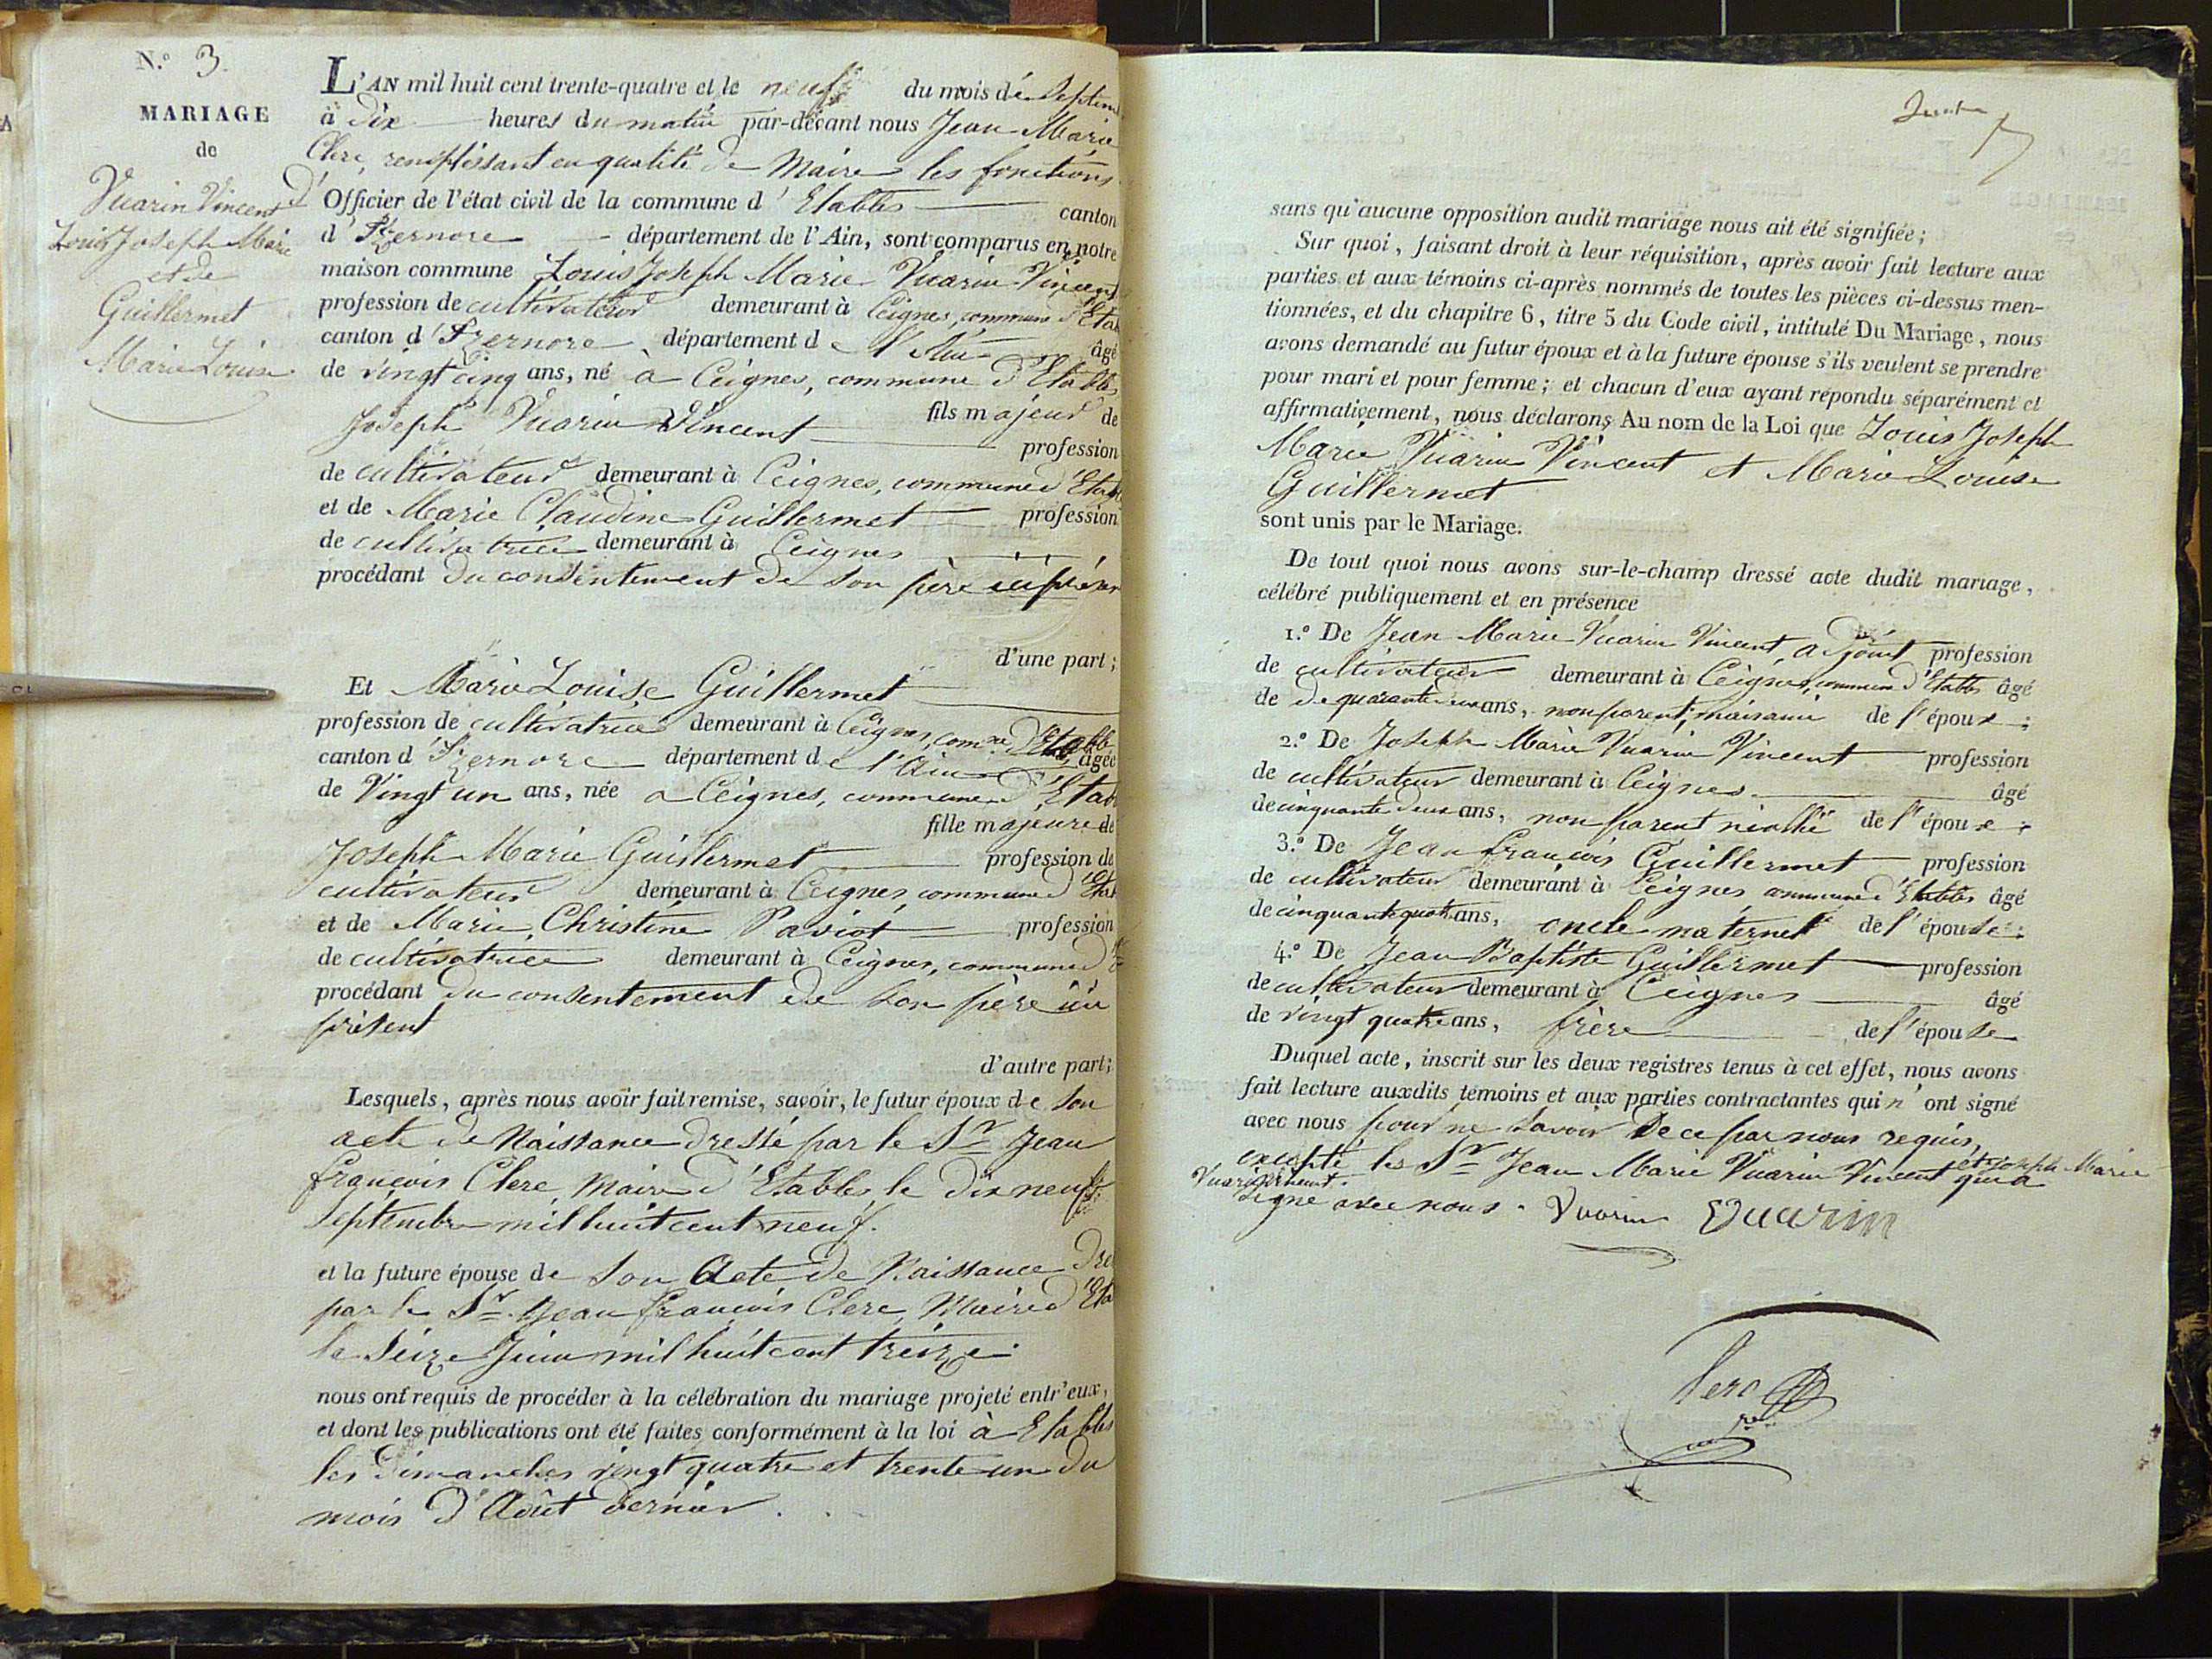 N.º 3.
MARIAGE
de
Vuarin Vincent
Louis Joseph Marie
et de
Guillermet
Marie Louise
L'AN mil huit cent trente-quatre et le neuf du mois de Septem
à dix heures du matin par-devant nous Jean Marie
Clerc, remplissant en qualité de Maire les fonctions
d'Officier de l'état civil de la commune d'Etables canton
d'Izernore département de l'Ain, sont comparus en notre
maison commune Louis Joseph Marie Vuarin Vincent
profession de cultivateur demeurant à Ceignes, commune d'Etab
canton d'Izernore département de l'Ain âgé
de vingt cinq ans, né à Ceignes, commune d'Etables
fils majeur de
Joseph Vuarin Vincent profession
de cultivateur demeurant à Ceignes, commune d'Etab
et de Marie Claudine Guillermet profession
de cultivatrice demeurant à Ceignes
procédant du consentement de son père ici présen
d'une part;
Et Marie Louise Guillermet
profession de cultivatrice demeurant à Ceignes, comne d'Etabl
canton d'Izernore département de l'Ain âgée
de Vingt un ans, née à Ceignes, commune d'Etab
fille majeure de
Joseph Marie Guillermet profession de
cultivateur demeurant à Ceignes, commune d'Etab
et de Marie Christine Paviot profession
de cultivatrice demeurant à Ceignes, commune d'
procédant du consentement de son père ici
présent
d'autre part;
Lesquels, après nous avoir fait remise, savoir, le futur époux de son
acte de Naissance dressé par le Sr Jean
françois Clerc, Maire d'Etables, le dix neuf
Septembre mil huit cent neuf.
et la future épouse de son Acte de Naissance dre
par le Sr Jean françois Clerc, Maire d'Eta
le Seize Juin mil huit cent treize.
nous ont requis de procéder à la célébration du mariage projeté entr'eux,
et dont les publications ont été faites conformément à la loi à Etables
les dimanches vingt quatre et trente un du
mois d'Août dernier.
sans qu'aucune opposition audit mariage nous ait été signifiée;
Sur quoi, faisant droit à leur réquisition, après avoir fait lecture aux
parties et aux témoins ci-après nommés de toutes les pièces ci-dessus men-
tionnées, et du chapitre 6, titre 5 du Code civil, intitulé Du Mariage, nous
avons demandé au futur époux et à la future épouse s'ils veulent se prendre
pour mari et pour femme; et chacun d'eux ayant répondu séparément et
affirmativement, nous déclarons Au nom de la Loi que Louis Joseph
Marie Vuarin Vincent et Marie Louise
Guillermet
sont unis par le Mariage.
De tout quoi nous avons sur-le-champ dressé acte dudit mariage,
célébré publiquement et en présence
1.º De Jean Marie Vuarin Vincent, adjoint profession
de cultivateur demeurant à Ceignes, commune d'Etables âgé
de quarante deux ans, non parent, mais ami de l'époux;
2.º De Joseph Marie Vuarin Vincent profession
de cultivateur demeurant à Ceignes âgé
de cinquante deux ans, non parent ni allié de l'époux;
3.º De Jean françois Guillermet profession
de cultivateur demeurant à Ceignes commune d'Etables âgé
de cinquante quatre ans, oncle maternel de l'épouse;
4.º De Jean Baptiste Guillermet profession
de cultivateur demeurant à Ceignes âgé
de vingt quatre ans, frère de l'épouse
Duquel acte, inscrit sur les deux registres tenus à cet effet, nous avons
fait lecture auxdits témoins et aux parties contractantes qui n'ont signé
avec nous pour ne savoir De ce par nous requis,
excepté les Sr Jean Marie Vuarin Vincent et Joseph Marie
Vuarin Vincent. qui a
signé avec nous. Vuarin Vuarin
Clerc